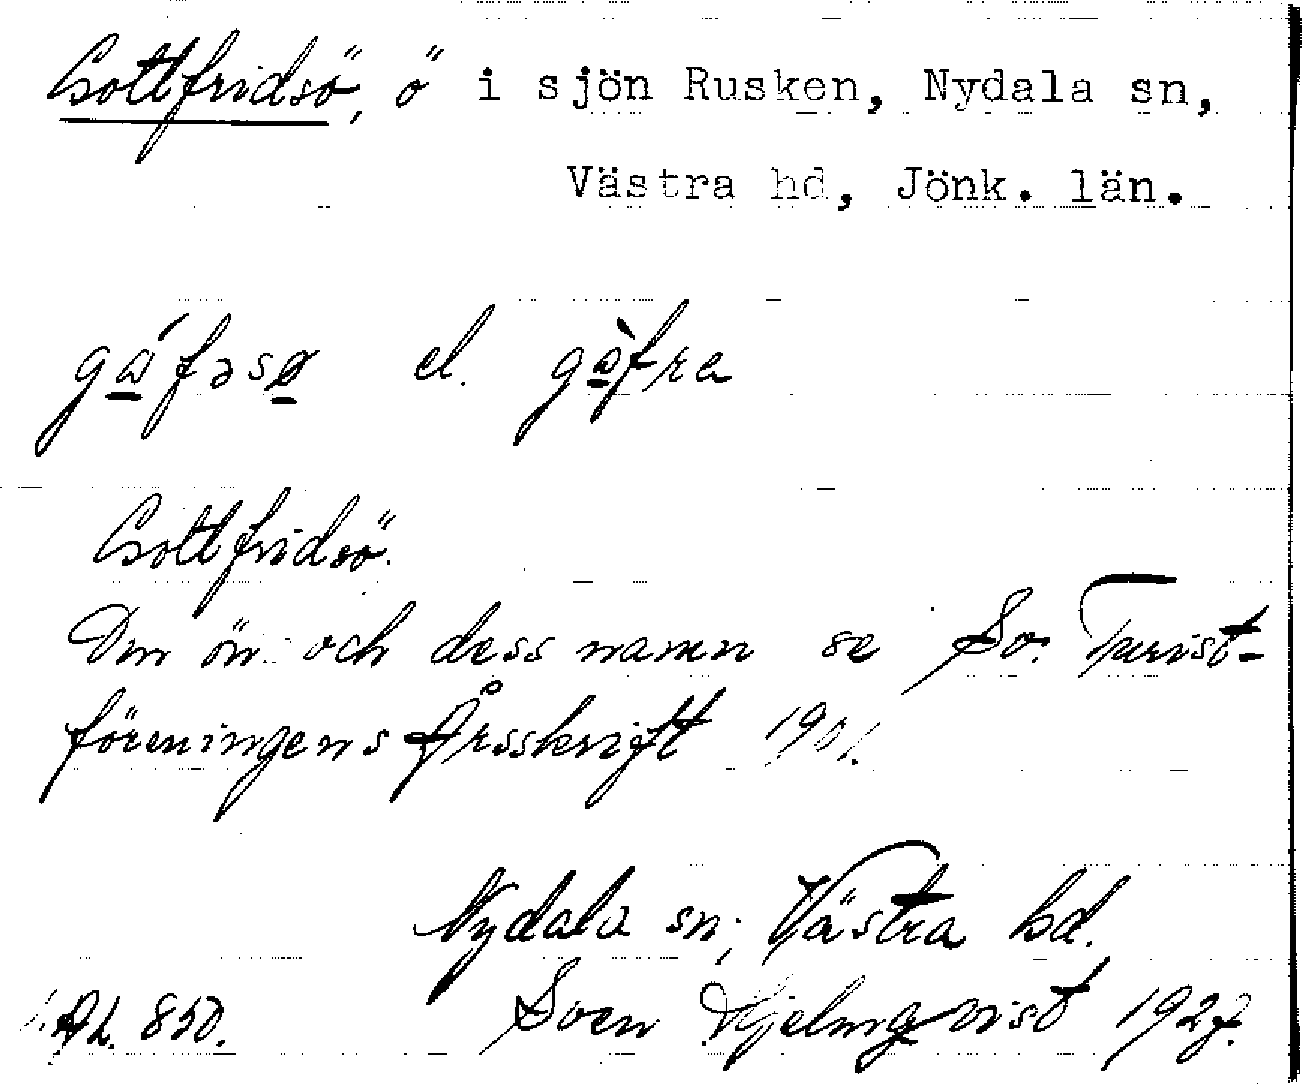 Gottfridsö, ö i sjön Rusken, Nydala sn,
Västra hd, Jönk. län.
gǻfəsø el. gå̀fra
Gottfridsö.
Om ön och dess namn se Sv. Turist-
föreningens Årsskrift 1901.
Nydala sn; Västra hd.
Ak. 850. Sven Hjelmqvist 1927.